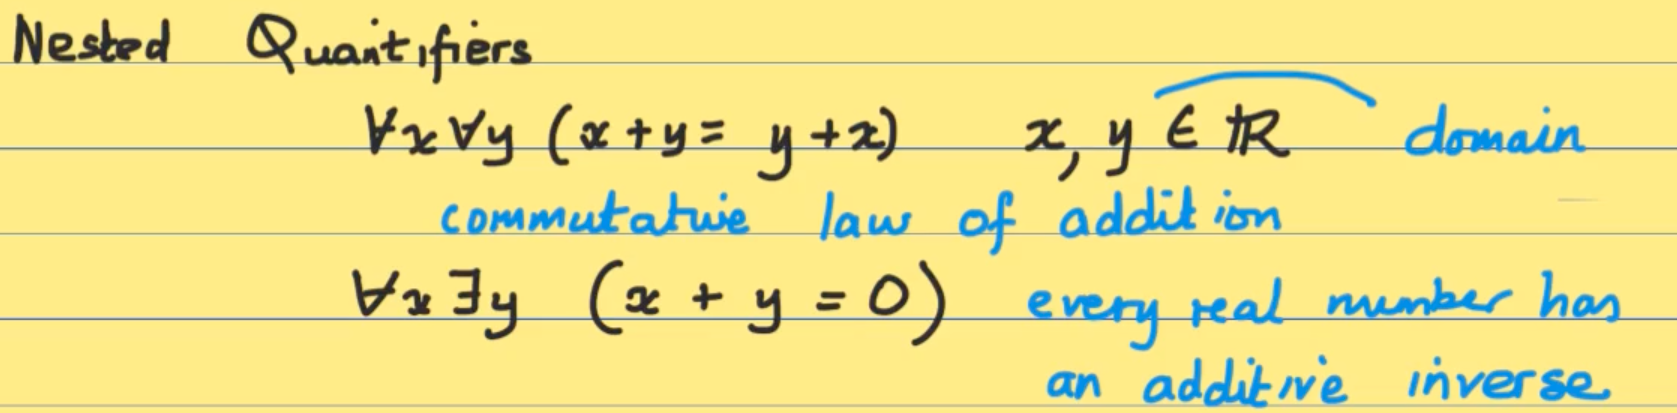 Nested Quantifiers
∀x∀y (x+y= y+x) x, y ∈ ℝ domain
commutative law of addition
∀x∃y (x + y = 0) every real number has
an additive inverse